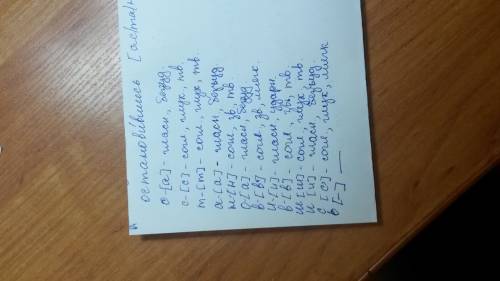 остановившись [ас/та/н
о-[а]-гласн, безуд.
с-[с]-согл, глух, тв.
т-[т]-согл, глух, тв.
а-[а]-гласн, безуд
н-[н]-согл, зв, тв
о-[а]-гласн, безуд
в-[в']-согл, зв, мягк.
и-[и]-гласн, ударн.
в-[в]-согл, тв,
ш-[ш]-согл, глух, тв.
и-[и]-гласн, безуд.
с-[с']-согл, глух, мягк
ь [-]